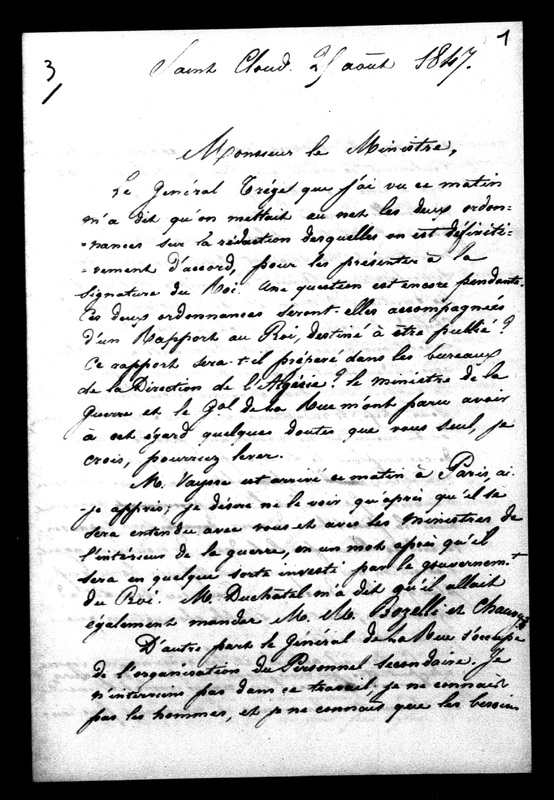 1
3/
Saint Cloud. 25 août 1847.
Monsieur le Ministre,
Le Général Trézel que j'ai vu ce matin
m'a dit qu'on mettait au net les deux ordon=
=nances sur la rédaction desquelles on est définiti=
=vement d'accord, pour les présenter à la
signature du Roi. Une question est encore pendante.
Ces deux ordonnances seront-elles accompagnées
d'un Rapport au Roi, destiné à être publié?
Ce rapport sera-t-il préparé dans les bureaux
de la Direction de l'Algérie? le ministre de la
Guerre et le Gal de La Rue m'ont paru avoir
à cet égard quelques doutes que vous seul, je
crois, pourriez lever.
M. Vaysse est arrivé ce matin à Paris, ai-
-je appris; je désire ne le voir qu'après qu'il se
sera entendu avec vous et avec les ministres de
l'intérieur de la guerre, en un mot après qu'il
sera en quelque sorte investi par le gouvernemt
du Roi. M. Duchatel m'a dit qu'il allait
également mander M. M. Bozelli et
D'autre part le Général de La Rue s'occupe
de l'organisation du Personnel secondaire. Je
n'interviens pas dans ce travail; je ne connais
pas les hommes, et je ne connais que les besoins